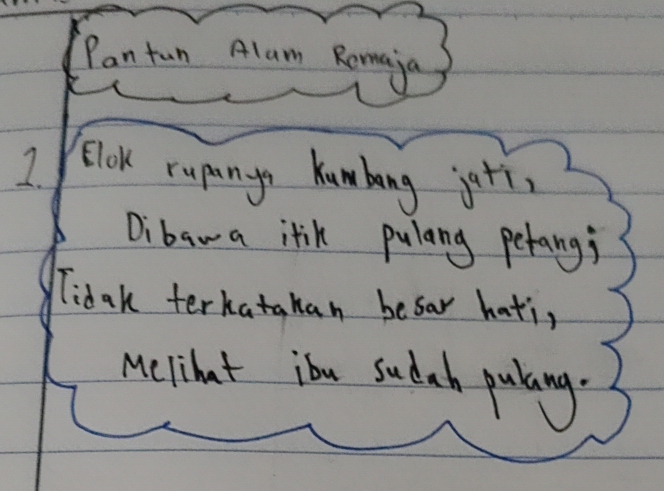 Pantun Alam Remaja
1. Elok rupanya kumbang jati,
Dibawa itik pulang petang;
Tidak terkatakan besar hati,
Melihat ibu sudah pulang.